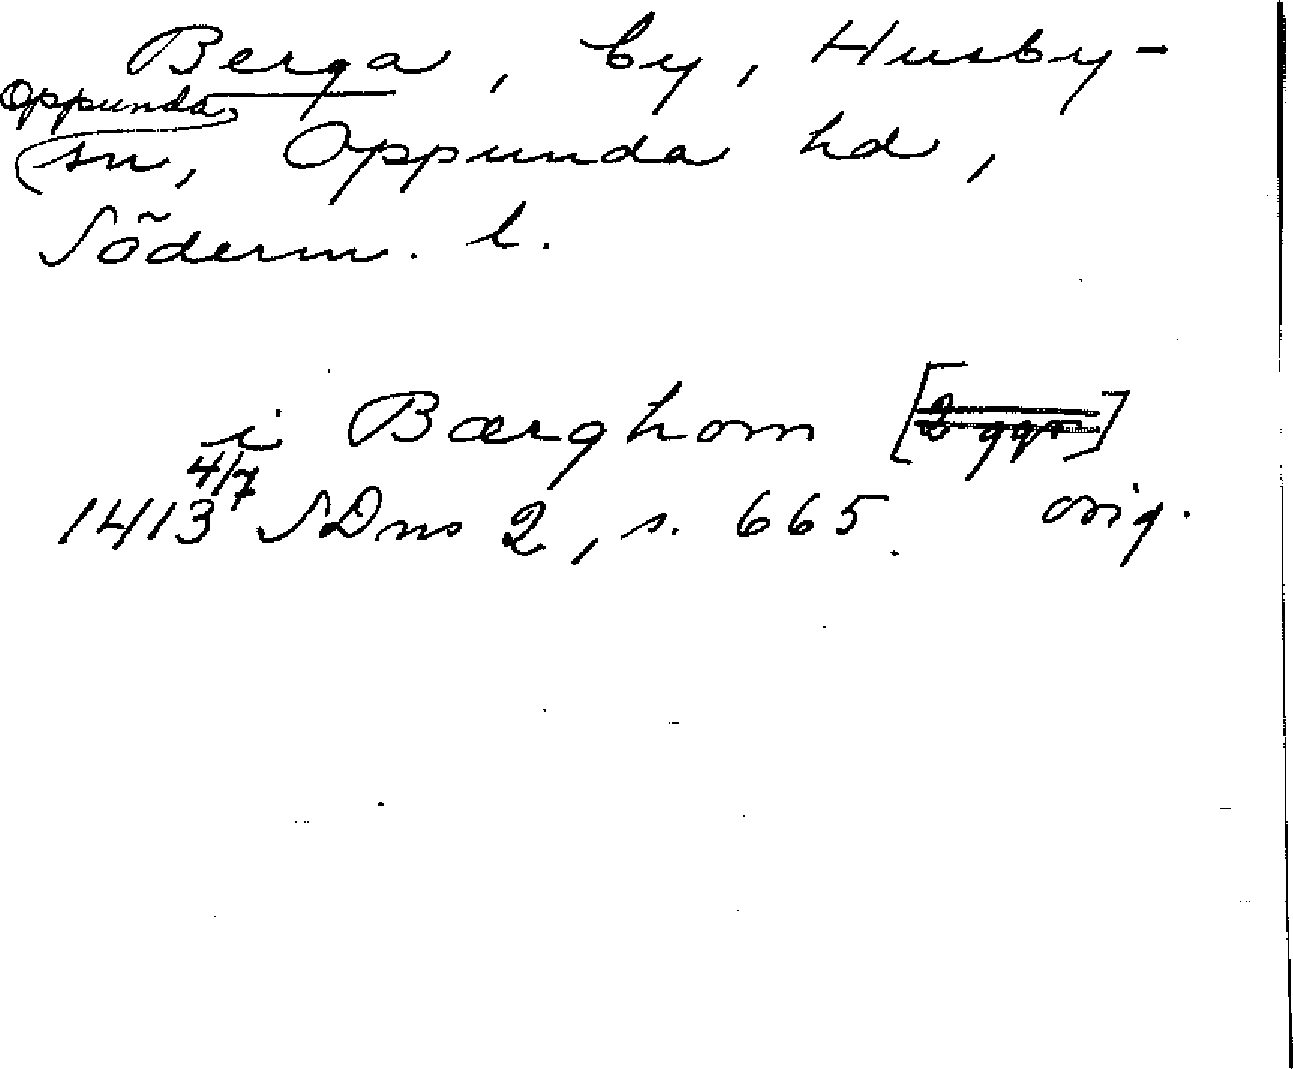 Berga, by, Husby-
Oppunda
sn, Oppunda hd,
Söderm. l.
i Bærghom [2 ggr]
4/7
1413 SDns 2, s. 665. orig.